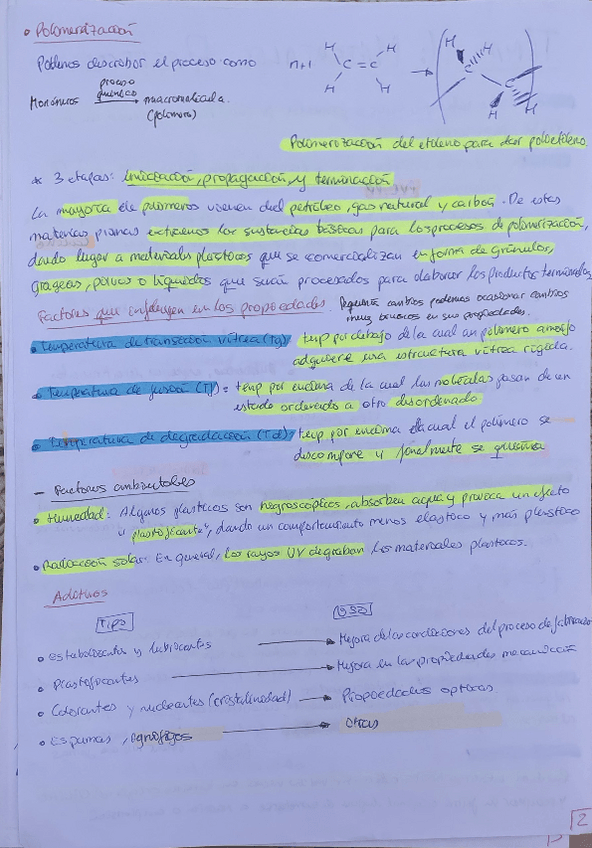 • Polimerización
Podemos describir el proceso como
Monómeros proceso químico → macromolécula. (polímero)
n+1 H H C=C H H → ( H H C C H H )
Polimerización del etileno para dar polietileno.
* 3 etapas: iniciación, propagación, y terminación
La mayoría de polímeros vienen del petróleo, gas natural y carbón. De estas
materias primas extraemos las sustancias básicas para los procesos de polimerización,
dando lugar a materiales plásticos que se comercializan en forma de gránulos,
grageas, polvos o líquidos que serán procesados para elaborar los productos terminados
Factores que influyen en las propiedades. Pequeños cambios podemos ocasionar cambios
muy bruscos en sus propiedades.
• Temperatura de transición vítrea (Tg): temp por debajo de la cual un polímero amorfo
adquiere una estructura vítrea rígida.
• Temperatura de fusión (Tf) = temp por encima de la cual las moléculas pasan de un
estado ordenado a otro desordenado
• Temperatura de degradación (Td): temp por encima de la cual el polímero se
descompone y finalmente se quema
- Factores ambientales
• Humedad: Algunos plásticos son higroscópicos, absorben agua y provoca un efecto
"plastificante", dando un comportamiento menos elástico y más plástico
• Radiación solar: En general, los rayos UV degradan los materiales plásticos.
Aditivos
Tipo USO
• Estabilizantes y lubricantes → Mejora de las condiciones del proceso de fabricación
• Plastificantes → Mejora en las propiedades mecánicas
• Colorantes y nucleantes (cristalinidad) → Propiedades ópticas
• Espumas, ignífugos → Otras
2